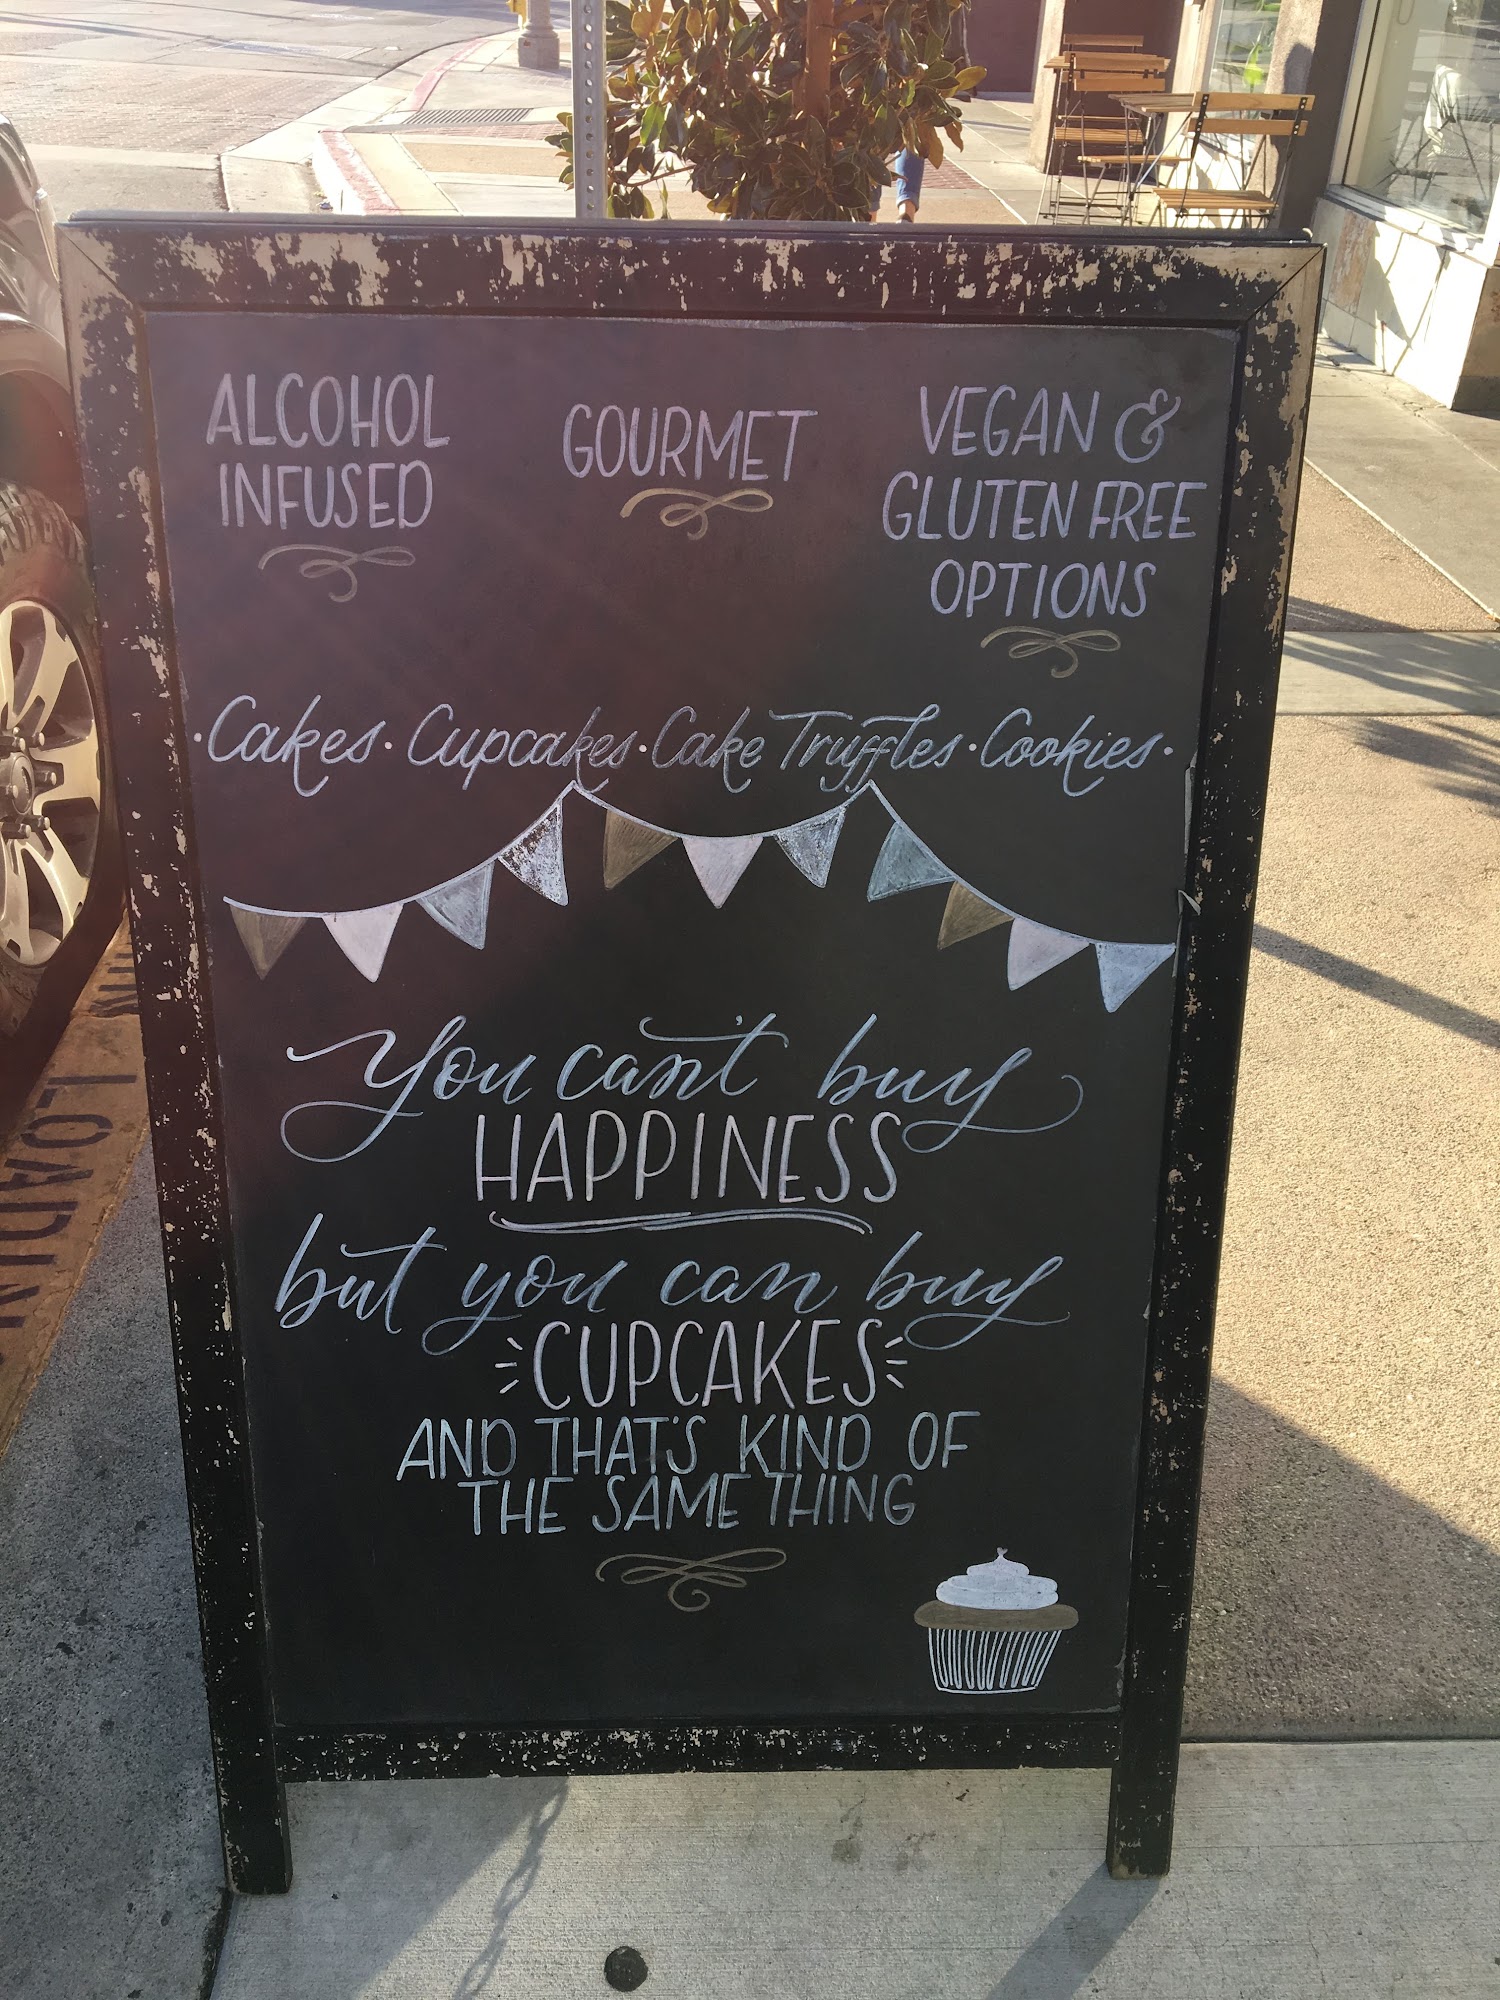 ALCOHOL
INFUSED
GOURMET
VEGAN &
GLUTEN FREE
OPTIONS
·Cakes·Cupcakes·Cake Truffles·Cookies·
You can't buy
HAPPINESS
but you can buy
CUPCAKES
AND THAT'S KIND OF
THE SAME THING
LOADIN